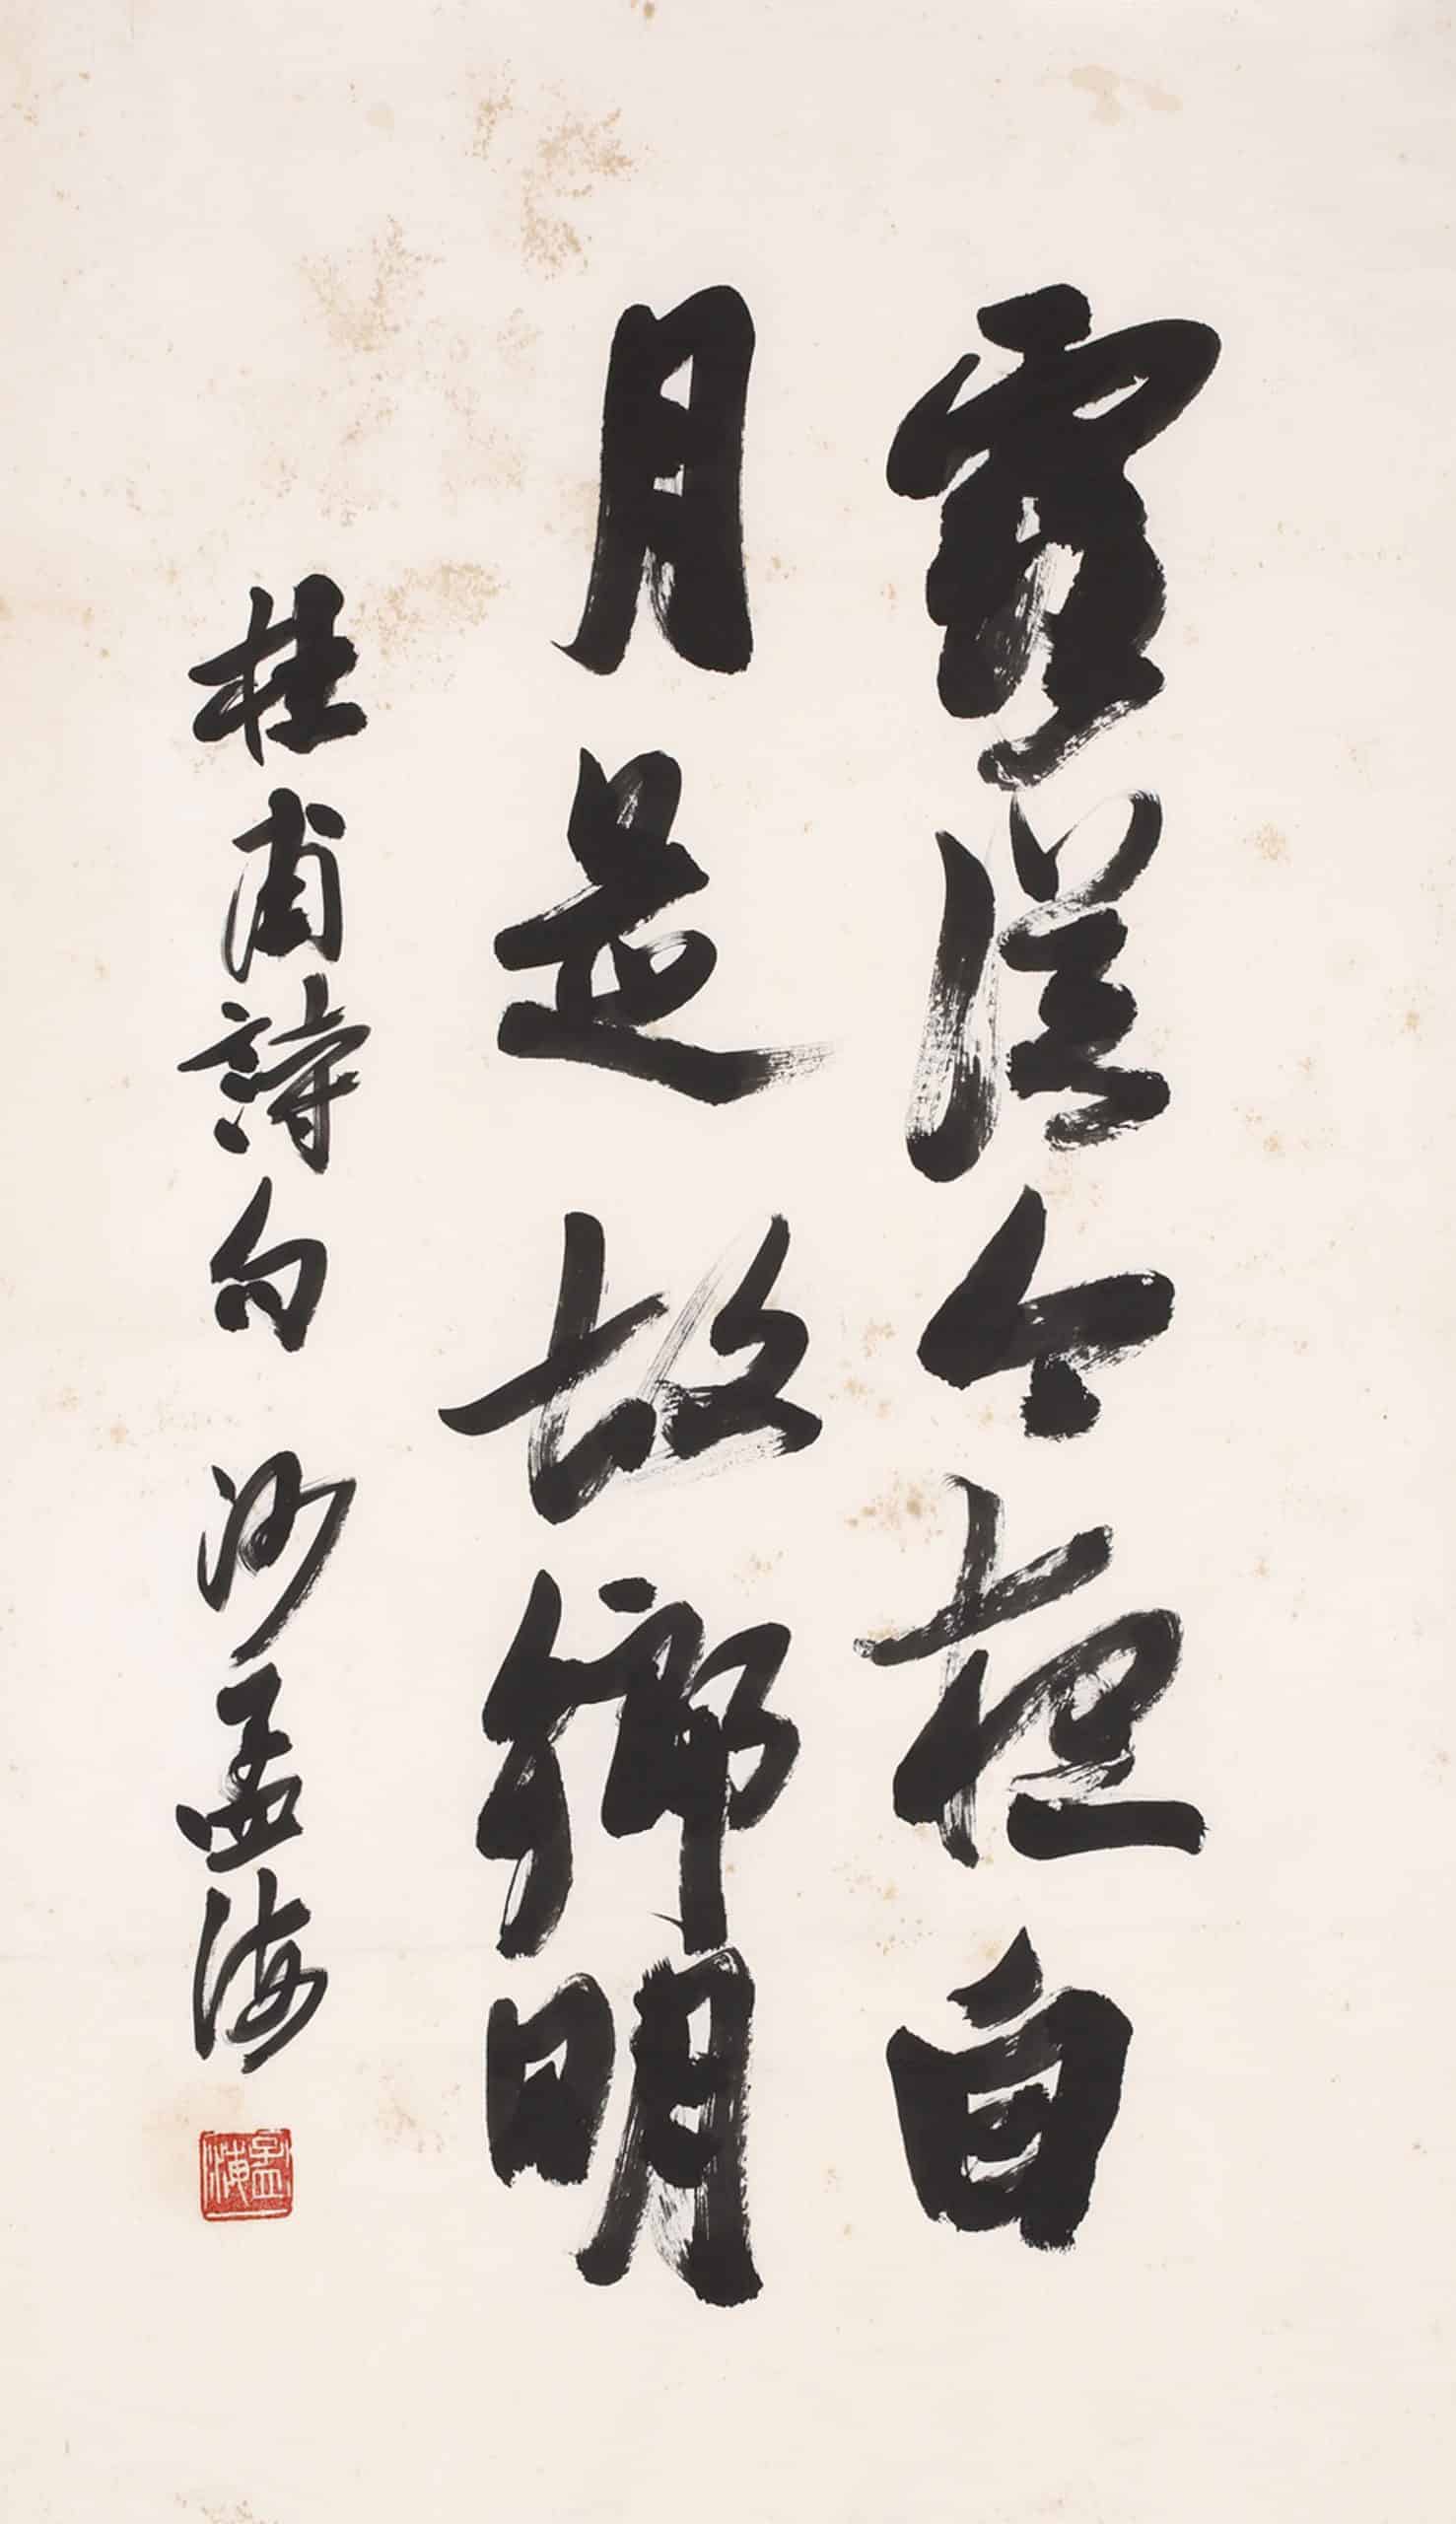 露從今夜白
月是故鄉明
杜甫詩句 沙孟海
孟海